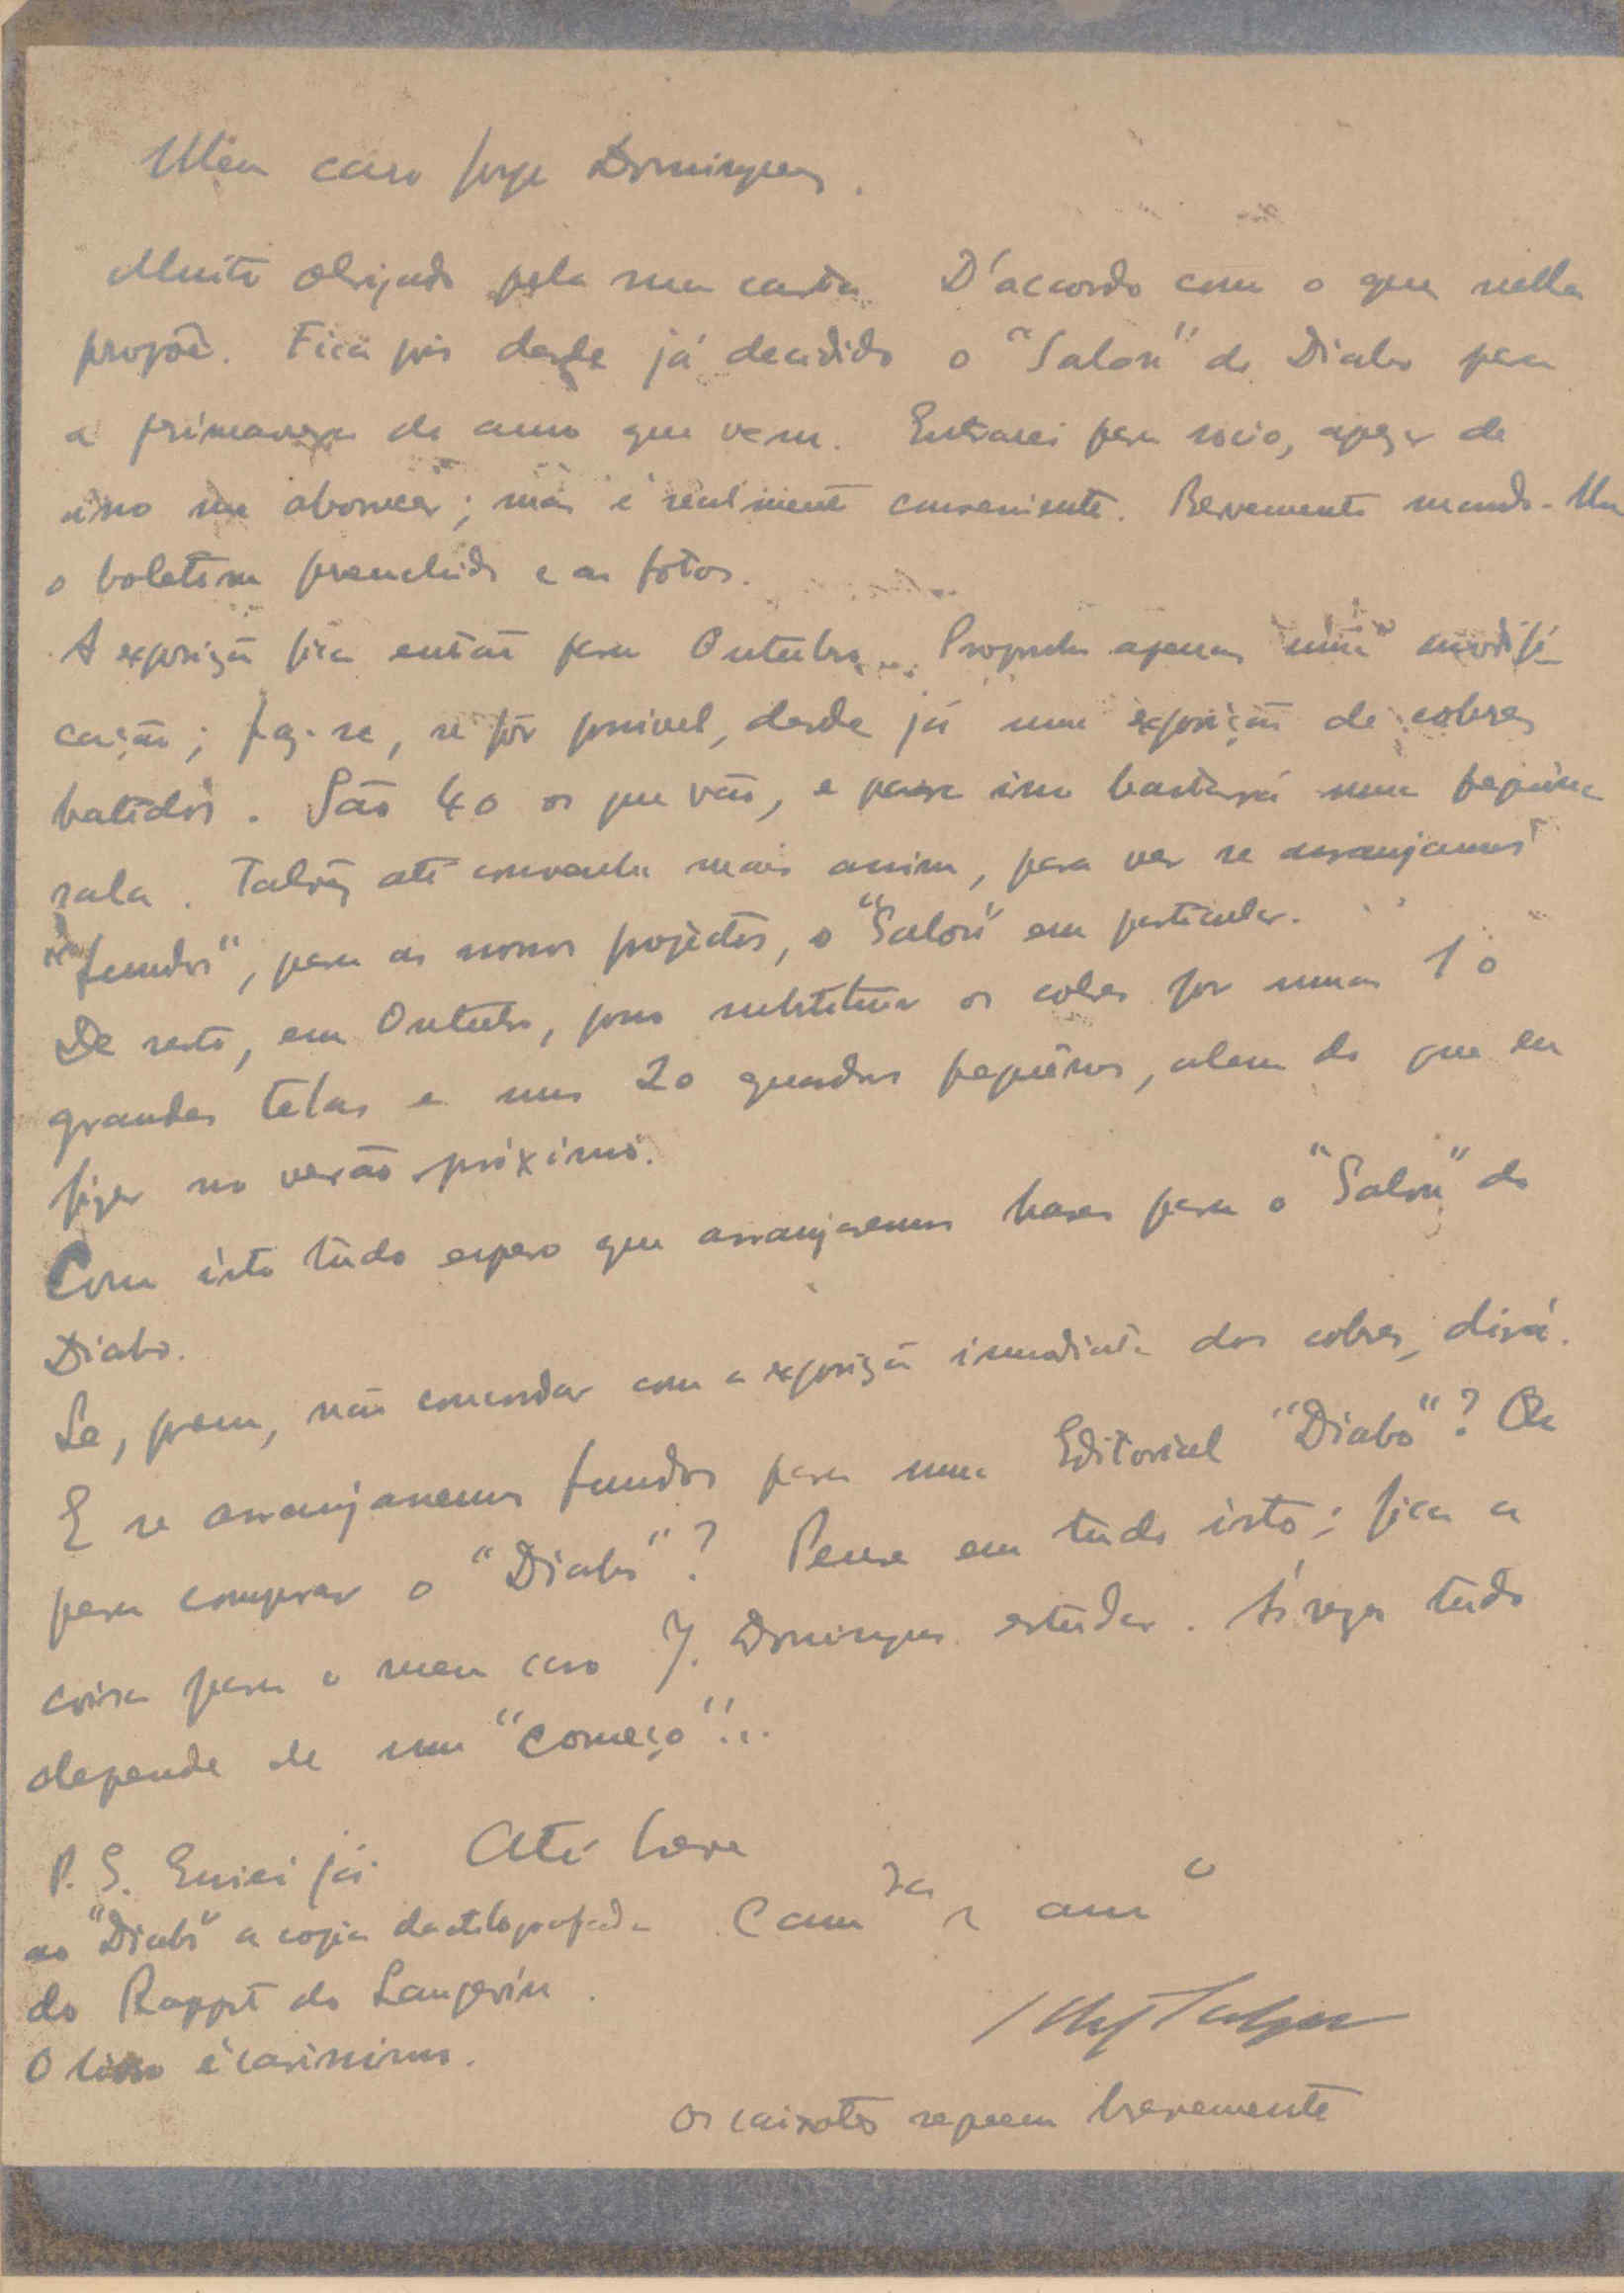 Meu caro Jorge Domingues.
Muito obrigado pela sua carta. D'accordo com o que nella
propõe. Fica pois desde já decidido o "Salon" do Diabo para
a primavera do anno que vem. Entrarei para socio, apezar de
isso me aborrecer; mas é realmente conveniente. Brevemente mando-lhe
o boletim preenchido e as fotos.
A exposição fica então para Outubro. Proponho apenas uma modifi-
cação; faz-se, se fôr possivel, desde já uma exposição de cobres
batidos. São 40 os que vão, e para isso bastará uma pequena
sala. Talvez até convenha mais assim, para ver se arranjamos
"fundos", para os nossos projectos, o "Salon" em particular.
De resto, em Outubro, posso substituir os cobres por umas 10
grandes telas e uns 20 quadros pequenos, alem do que eu
fizer no verão próximo.
Com isto tudo espero que arranjaremos bases para o "Salon" do
Diabo.
Se, porem, não concordar com a exposição immediata dos cobres, dirá.
E se arranjassemos fundos para uma Editorial "Diabo"? Ou
para comprar o "Diabo"? Pense em tudo isto; fica a
coisa para o meu caro J. Domingues estudar. Ás vezes tudo
depende de um "começo"...
Até breve
Cam.da e am.o
P.S. Enviei já
ao "Diabo" a copia dactilografada
do Rapport do Langevin.
O livro é carissimo.
Os caixotes seguem brevemente